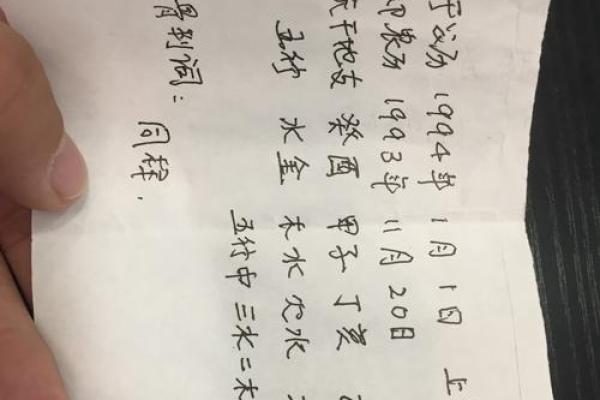 于公历 1994年 1月1日 上
即农历 1993年 11月20日
天干地支 癸酉 甲子 丁亥
五行 水金 木水 火水
五行中三水二木
骨判词：
同样.